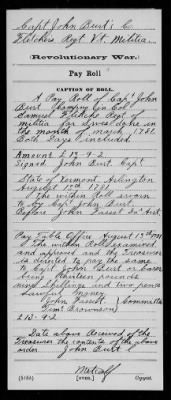 Capt John Burt's Co
Fletchers Regt Vt. Militia.
Revolutionary War.
Pay Roll
CAPTION OF ROLL.
A Pay Roll of Capt John
Burt Company in Col.
Samuel Fletchers Regt of
Militia for Service done in
the month of march 1780
Both Days included.
Amount £ 13-9-2
Signed John Burt Capt
State of Vermont Arlington
August 13th 1781.
the within Roll sworn
to by Capt John Burt.
Before John Fasset
Pay Table Office August 13th 1781
The within Roll examined
and approved and the Treasurer
is directed to pay the same
to Capt John Burt or bearer
being thirteen pounds
nine Shillings and two pence
money
John Fassett
Timo Brownson Committee
£ 13-9-2
Date above Received of the
Treasurer the contents of the above
order John Burt
Metcalf
[OVER.] Copyist.